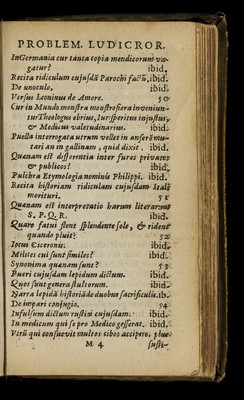 PROBLEM. LUDICROR.
In Germania cur tanta copia mendicorum va-
gatur? ibid.
Recita ridiculum cujusdã Parochi factũ, ibid.
De unoculo. ibid.
Versus Leoninus de Amore. 50
Cur in Mundo monstra monstrifiera inveniun-
tur Theologus ebrius, Iurisperitus injustus,
& Medicus valetudinarius. ibid.
Puella interrogata utrum vellet in anserẽ mu-
tari an in gallinam, quid dixit. ibid.
Quanam est differentia inter fures privatos
& publicos? ibid.
Pulchra Etymologia nominis Philippi. ibid.
Recita historiam ridiculam cujusdam Itali
morituri. 51
Quanam est interpretatio harum literarum
S. P. Q. R. ibid.
Quare fatui stent splendente sole, & rident
quando pluit? 52
Iocus Ciceronis. ibid.
Milites cui sunt similes? ibid.
Synonima quanam sunt? 53
Pueri cujusdam lepidum dictum. ibid.
Quot sunt genera stultorum. ibid.
Narra lepidã historiã de duobus sacrificulis. ib.
De impari conjugio. 54
Insulsum dictum rustici cujusdam. ibid.
In medicum qui se pro Medico gesserat. ibid.
Utrũ qui consuevit multos cibos accipere, plue
M 4 susti-